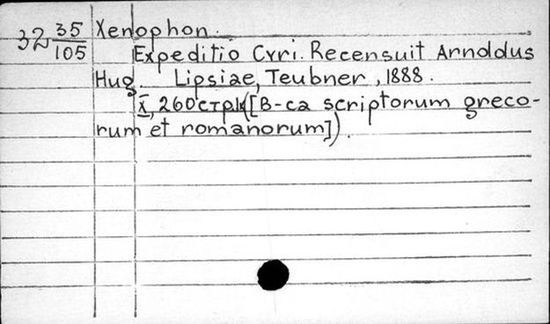 32 35/105 Xenophon.
Expeditio Cyri. Recensuit Arnoldus
Hug. Lipsiae, Teubner, 1888.
X, 260 стр. ([B-ca scriptorum greco-
rum et romanorum]).